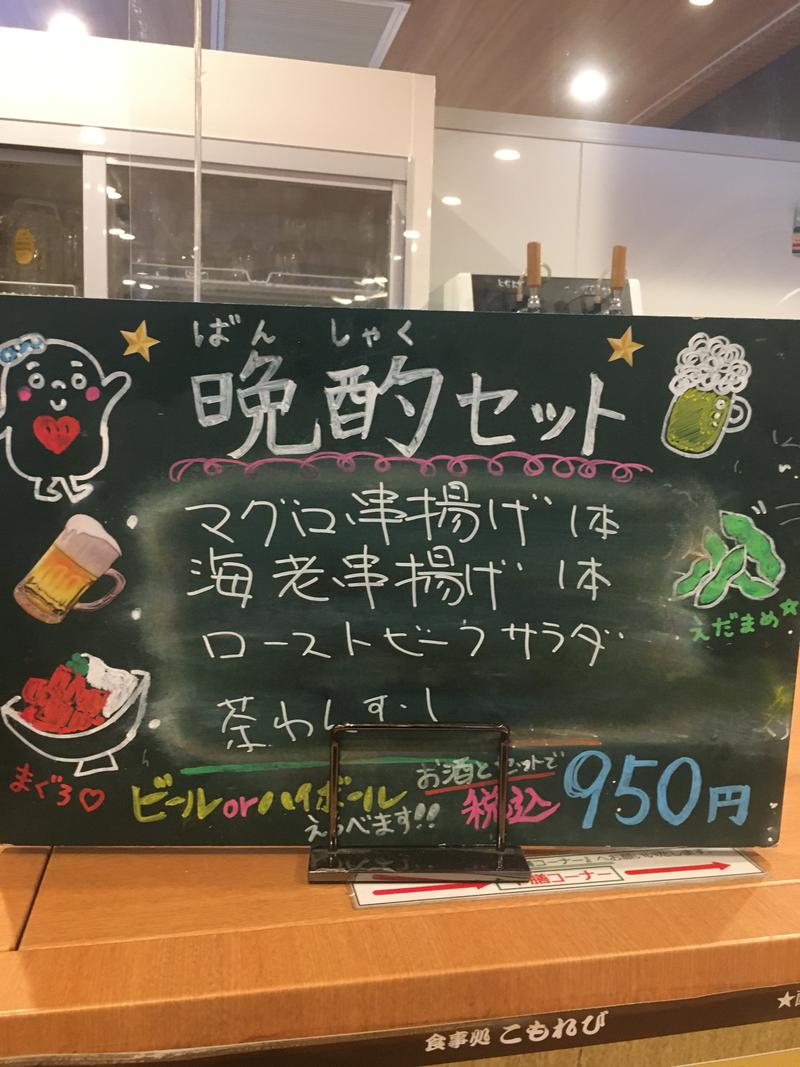 ばん しゃく
晩酌セット
マグロ串揚げ 1本
海老串揚げ 1本
ローストビーフサラダ
茶わんむし
えだまめ☆
まぐろ♡
ビールorハイボール
えらべます!!
お酒とセットで
税込 950円
膳コーナー
食事処 こもれび